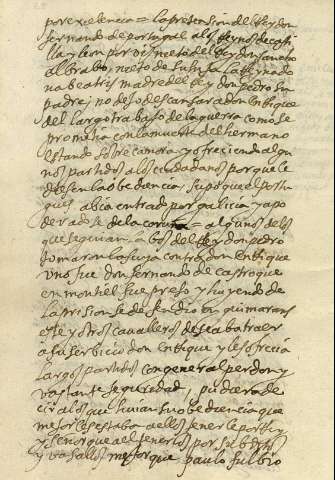 por excelencia = la pretension del Rey don
fernando de portugal a los Reynos de casti
lla y leon por viznieto del Rey don sancho
el brabo, nieto de su hija la Reyna do
na beatris madre del Rey don pedro su
padre, no dejo descansar a don enrique
del largo trabajo de la guerra como se
prometia con la muerte del hermano
estando sobre camora y ofreciendo algu
nos partidos a los ciudadanos porque le
diesen la obediencia supo que el portu
gues abia entrado por galicia y apo
deradose de la coruña = algunos de los
que seguian la bos del Rey don pedro
tomaron la suya contra don enrique
uno fue don fernando de castro que
en montiel fue preso y huyendo de
la prision se defendio en guimarans
este y otros cavalleros deseaba traer
a su servicio don enrique y les ofrecia
largos partidos con general perdon y
bastante seguridad, pudiera de
cir a los que huian su obediencia que
mejor les estaba a ellos tenerle por
señor que al tenerlos por subditos
y vasallos mejor que paulo fulbio